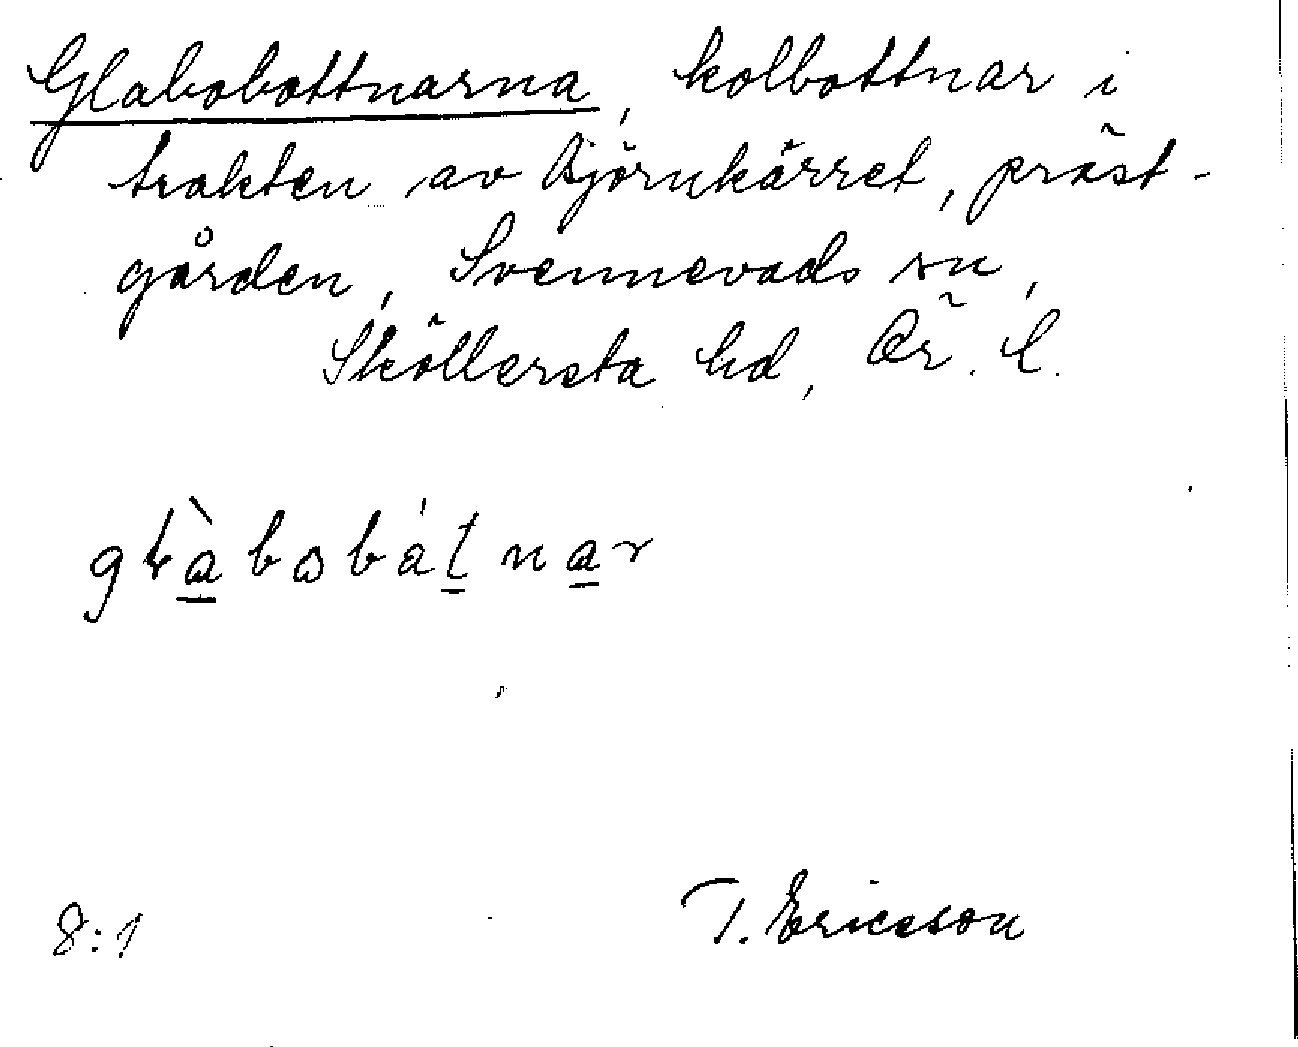 Glabobottnarna, kolbottnar i
trakten av Björnkärret, präst-
gården, Svennevads sn,
Sköllersta hd, Ör. l.
gɫàbobåt̲nar
8:1
T. Ericsson